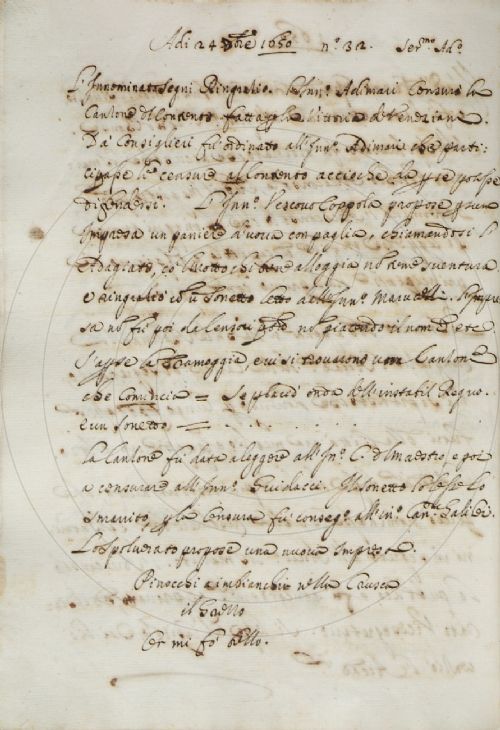 Adi 24 8bre 1650 n.º 32. Ser.mo Ad.º
L'Innominato Segni Ringratio. L'Inn.º Adimari Censurò la
Canzone del Contento fatta p la Vittoria de Veneziani.
Da Consiglieri fu ordinato all'Inn.º Adimari che parti=
cipasse le censure al Contento accioche le potesse
difendersi. L'Inn.º Vescovo Coppola propose p sua
Impresa un paniere d'uova con paglia, chiamandosi l'
Adagiato, co'l motto chi bene alloggia nõ teme sventura
e ringratiò cõ u Sonetto letto dall'Inn.º Marucelli.
sa nõ fu poi da Censori nõ piacendo il nome
S'aperse la Tramoggia, e vi si trovarono una Canzone
che Comincia = Se placid' onda dell'instabil Regno.
e un sonetto =
La Canzone fu data a leggere all'In.º C. del Maestro e poi
a censurare all'Inn.º Guidacci. Il Sonetto lo lesse lo
Smarrito, e p la Censura fu conseg.º all'in.º Can.co Galilei.
Lo Spolverato propose una nuova Impresa.
Pinocchi a imbianchir nella
il
Per mi fo bello.